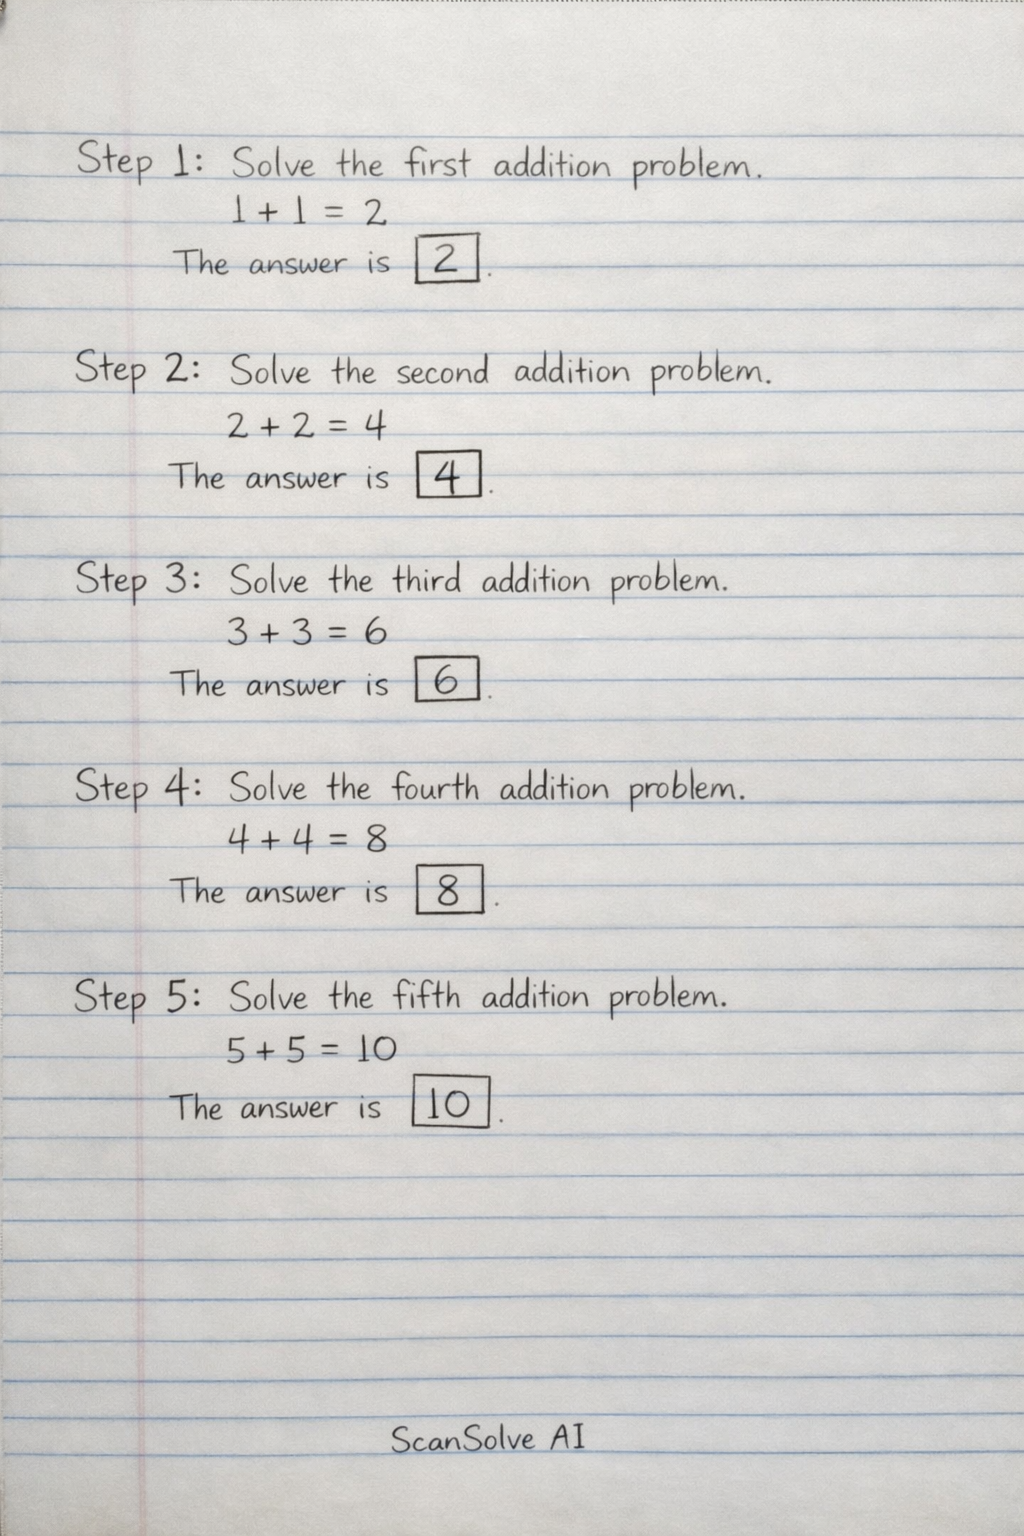 Step 1: Solve the first addition problem.
1 + 1 = 2
The answer is 2.
Step 2: Solve the second addition problem.
2 + 2 = 4
The answer is 4.
Step 3: Solve the third addition problem.
3 + 3 = 6
The answer is 6.
Step 4: Solve the fourth addition problem.
4 + 4 = 8
The answer is 8.
Step 5: Solve the fifth addition problem.
5 + 5 = 10
The answer is 10.
ScanSolve AI